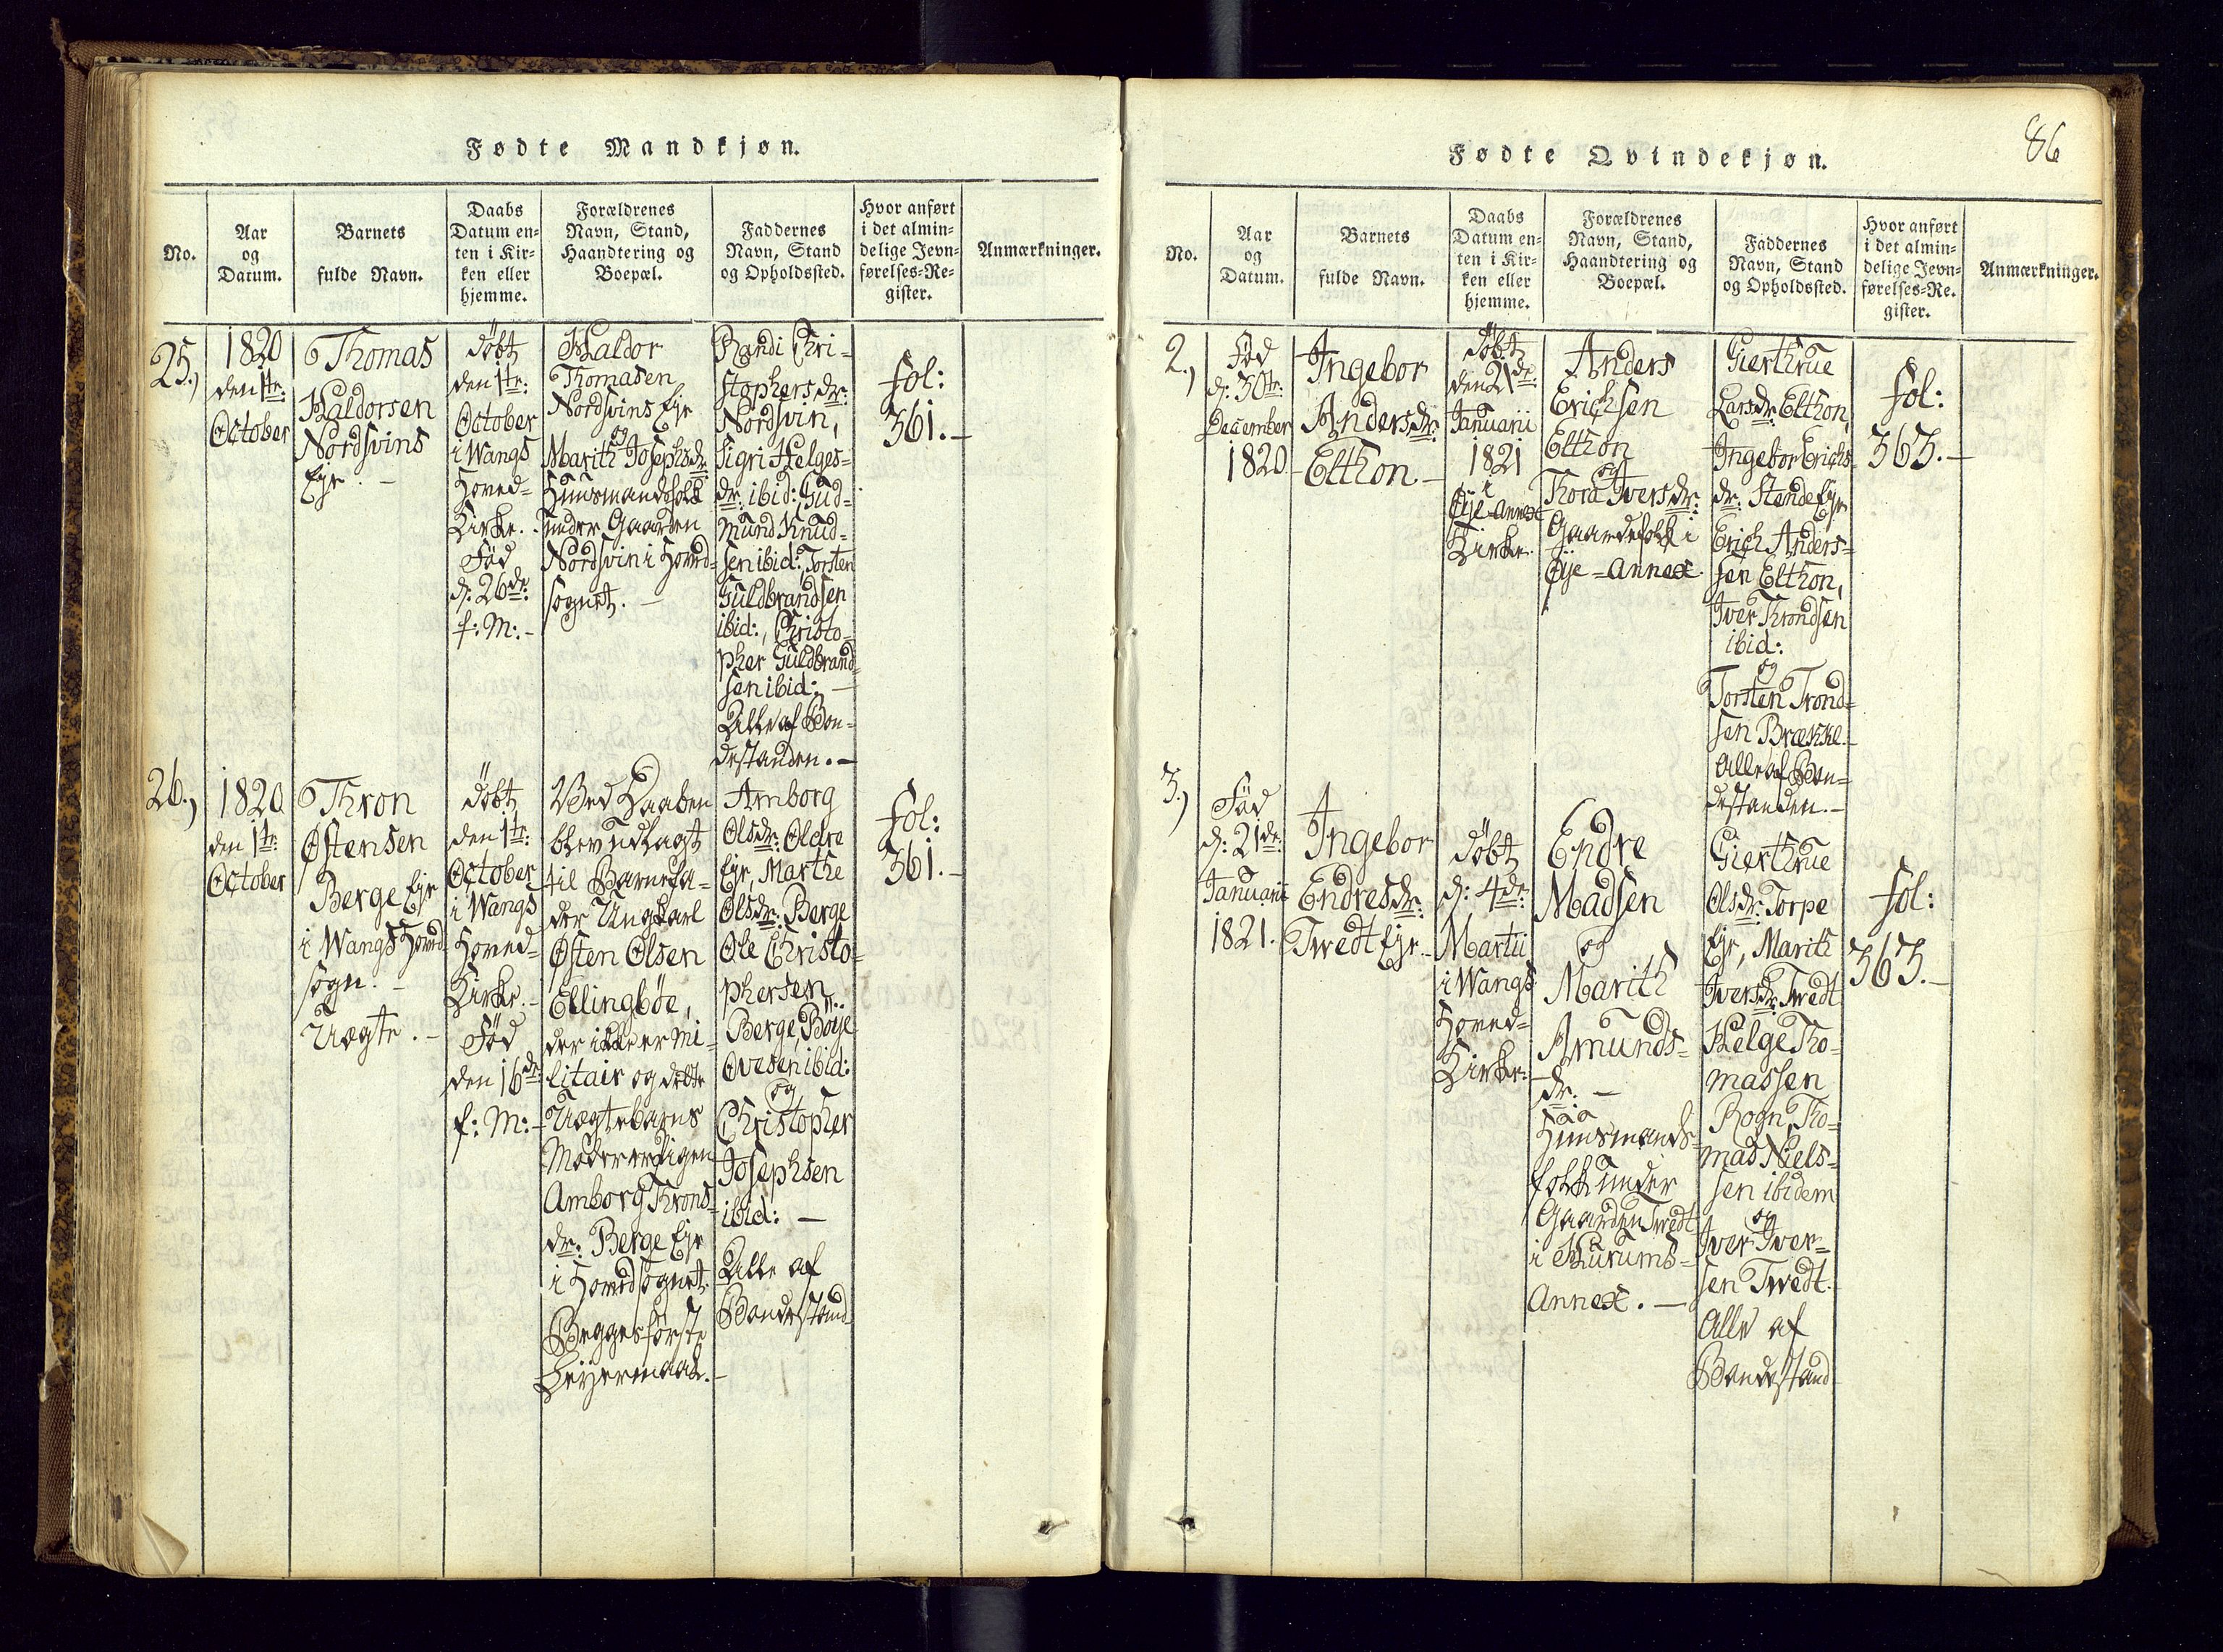 Fødte Mandkjøn.
No.
Aar
og
Datum.
Barnets
fulde Navn.
Daabs
Datum en-
ten i Kir-
ken eller
hjemme.
Forældrenes
Navn, Stand,
Haandtering og
Boepæl.
Faddernes
Navn, Stand
og Opholdssted.
Hvor anført
i det almin-
delige Jevn-
førelses-Re-
gister.
Anmærkninger.
25.,
1820
den 1te:
October
Thomas
Haldorsen
Nordsvins
Eje. -
döbt
den 1te:
October
i Wangs
Hoved-
Kirke.
Föd
d: 26de:
f: M: -
Haldor
Thomasen
Nordsvins Eje
og
Marith Josephsdr:
Huusmandsfolk
under Gaarden
Nordsvin i Hoved-
sognet. -
Randi Chri-
stophersdr:
Nordsvin,
Sigri Helges-
dr: ibid: Gud-
mund Knud-
sen ibid: Torsten
Guldbrandsen
ibid:, Christo-
pher Guldbrand-
sen ibid: -
Alle af Bon-
destanden. -
fol:
361. -
26.,
1820
den 1te:
October
Thron
Østensen
Berge Eje
i Wangs Hoved-
sogn. -
Uægte. -
döbt
den 1te:
October
i Wangs
Hoved-
Kirke. -
Föd
den 16de
f: M: -
Ved Daaben
blev udlagt
til Barnefa-
der Ungkarl
Østen Olsen
Ellingböe,
der ikke er mi-
litair og dette
Uægtebarns
Moder er Pigen
Amborg Throns-
dr: Berge Eje
i Hovedsognet.
Begges förste
Leyermaal. -
Amborg
Olsdr: Oldre
Eje, Marthe
Olsdr: Berge
Ole Christo-
phersen
Berge, Böye
Ovesen ibid:
og
Christopher
Josephsen
ibid: -
Alle af
Bondestand
fol:
361. -
86
Fødte Qvindekjøn.
No.
Aar
og
Datum.
Barnets
fulde Navn.
Daabs
Datum en-
ten i Kir-
ken eller
hjemme.
Forældrenes
Navn, Stand,
Haandtering og
Boepæl.
Faddernes
Navn, Stand
og Opholdssted.
Hvor anført
i det almin-
delige Jevn-
førelses-Re-
gister.
Anmærkninger.
2.,
Föd
d: 30te:
December
1820. -
Ingebor
Andersdr:
Elthon -
döbt
den 21de:
Januarii
1821
i
Øje-Annex
Kirke.
Anders
Erichsen
Elthon
og
Thora Iversdr:
Gaardefolk i
Øje-Annex.
Gierthrue
Larsdr: Elthon,
Ingebor Erichs-
dr: Stende Eje
Erich Anders-
sen Elthon,
Iver Throndsen
ibid:
og
Torsten Trond-
sen Brække. -
Alle af Bon-
destanden. -
fol:
363. -
3.,
Föd
d: 21de:
Januarii
1821.
Ingebor
Endresdr:
Twedt Eje. -
döbt
d: 4de:
Martii
i Wangs
Hoved-
Kirke: -
Endre
Madsen
og
Marith
Amunds-
dr: -
Huusmands-
folk under
Gaarden Twedt
i Hurums-
Annex. -
Gierthrue
Olsdr: Torpe
Eje, Marith
Iversdr: Twedt
Helge Tho-
massen
Rogn, Tho-
mas Niels-
sen ibidem
og
Iver Iver-
sen Twedt.
Alle af
Bondestand
fol:
363. -